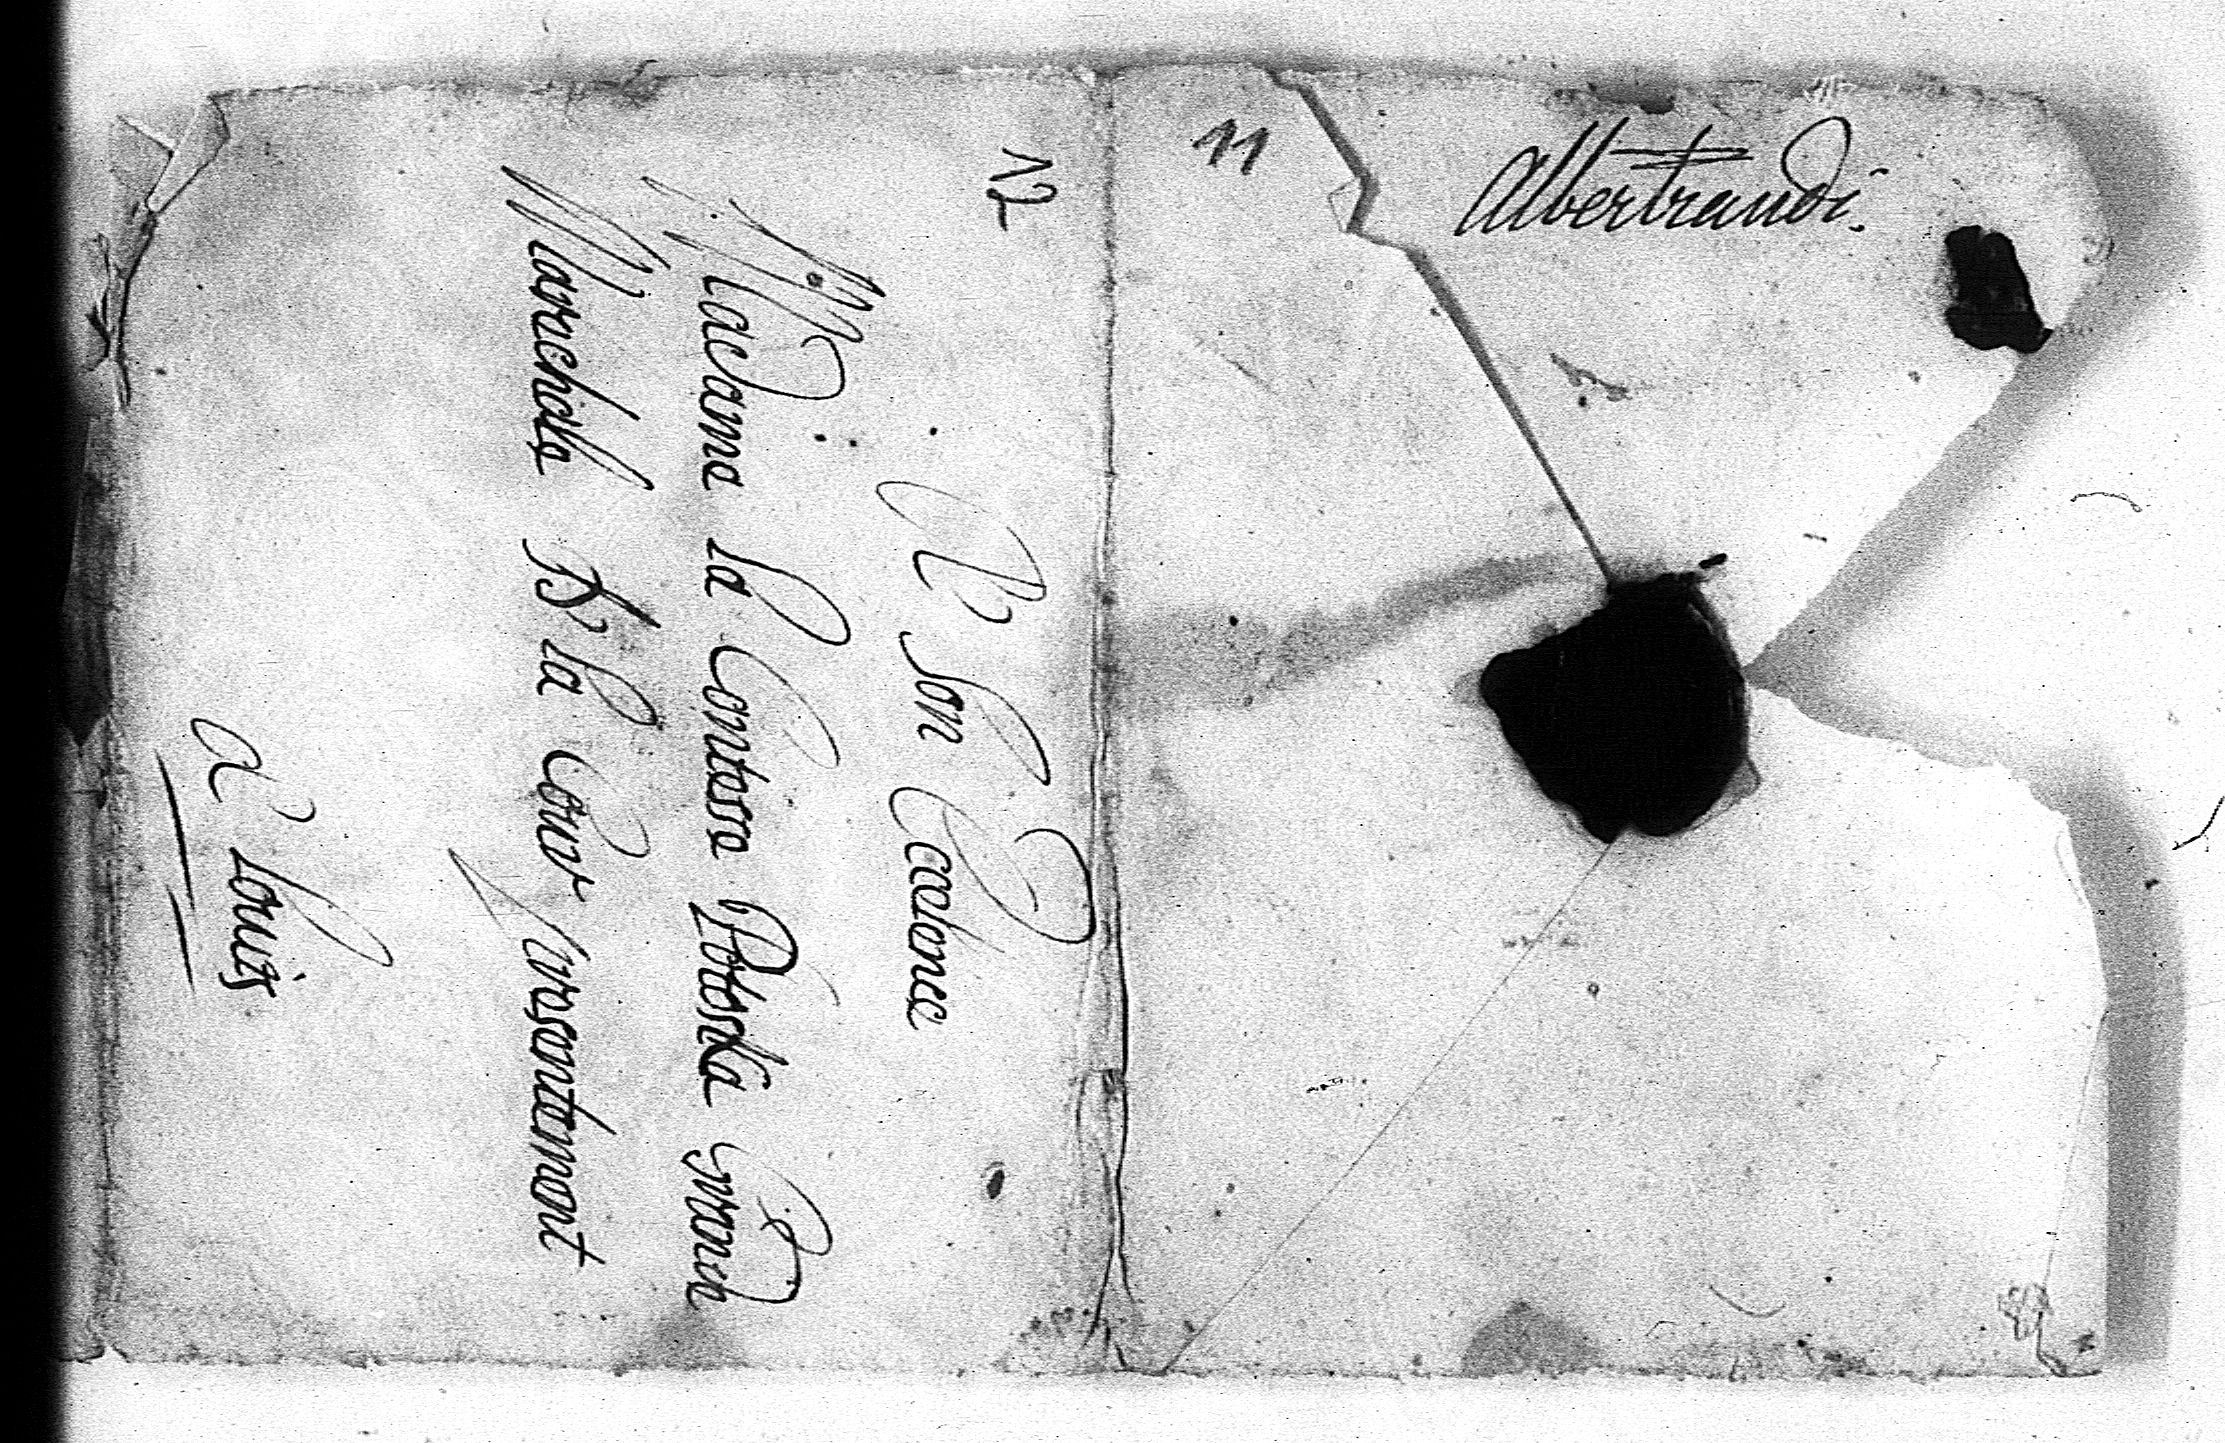 11
Albertrandi.
12
A Son Excelence
Madame la Contesse Potoska Grande
Marechale De la Cour presentement
a Louis